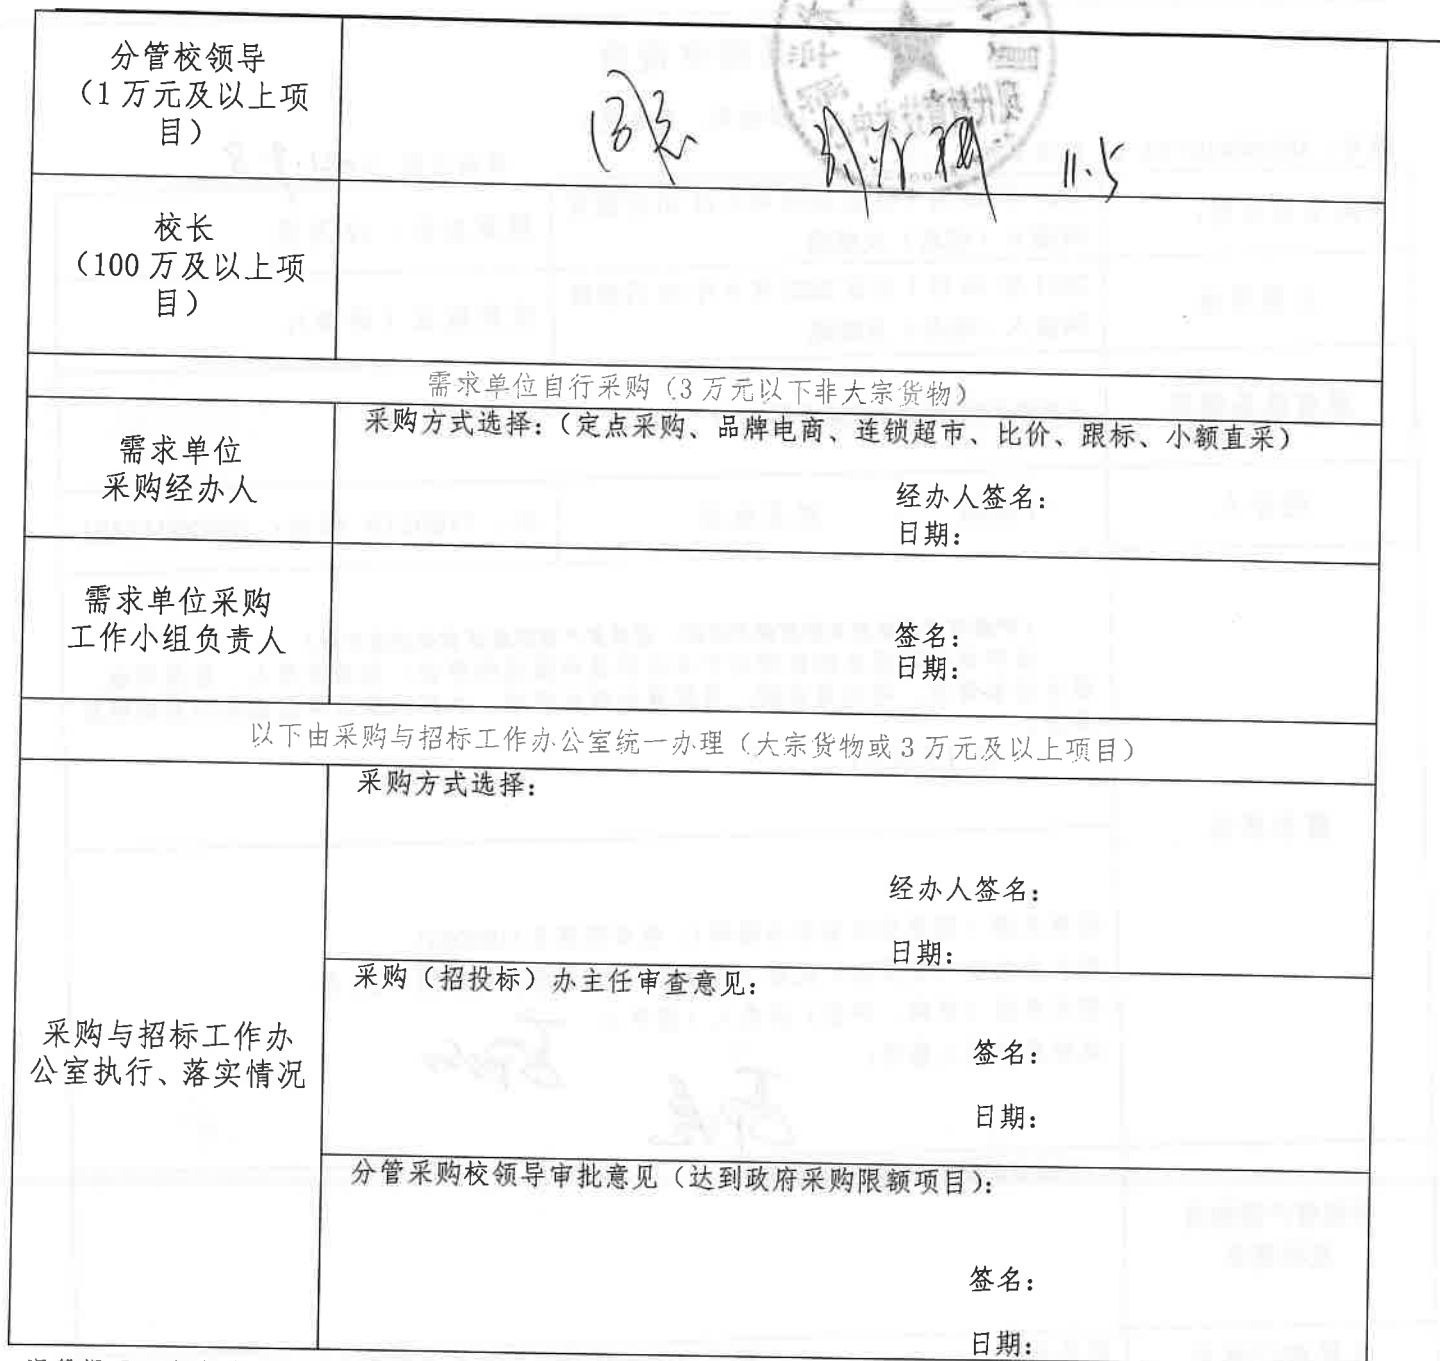 分管校领导
（1万元及以上项
目）
同意
11.5
现代教育技术中心
校长
（100万及以上项
目）
需求单位自行采购（3万元以下非大宗货物）
需求单位
采购经办人
采购方式选择：（定点采购、品牌电商、连锁超市、比价、跟标、小额直采）
经办人签名：
日期：
需求单位采购
工作小组负责人
签名：
日期：
以下由采购与招标工作办公室统一办理（大宗货物或3万元及以上项目）
采购与招标工作办
公室执行、落实情况
采购方式选择：
经办人签名：
日期：
采购（招投标）办主任审查意见：
签名：
日期：
分管采购校领导审批意见（达到政府采购限额项目）：
签名：
日期：